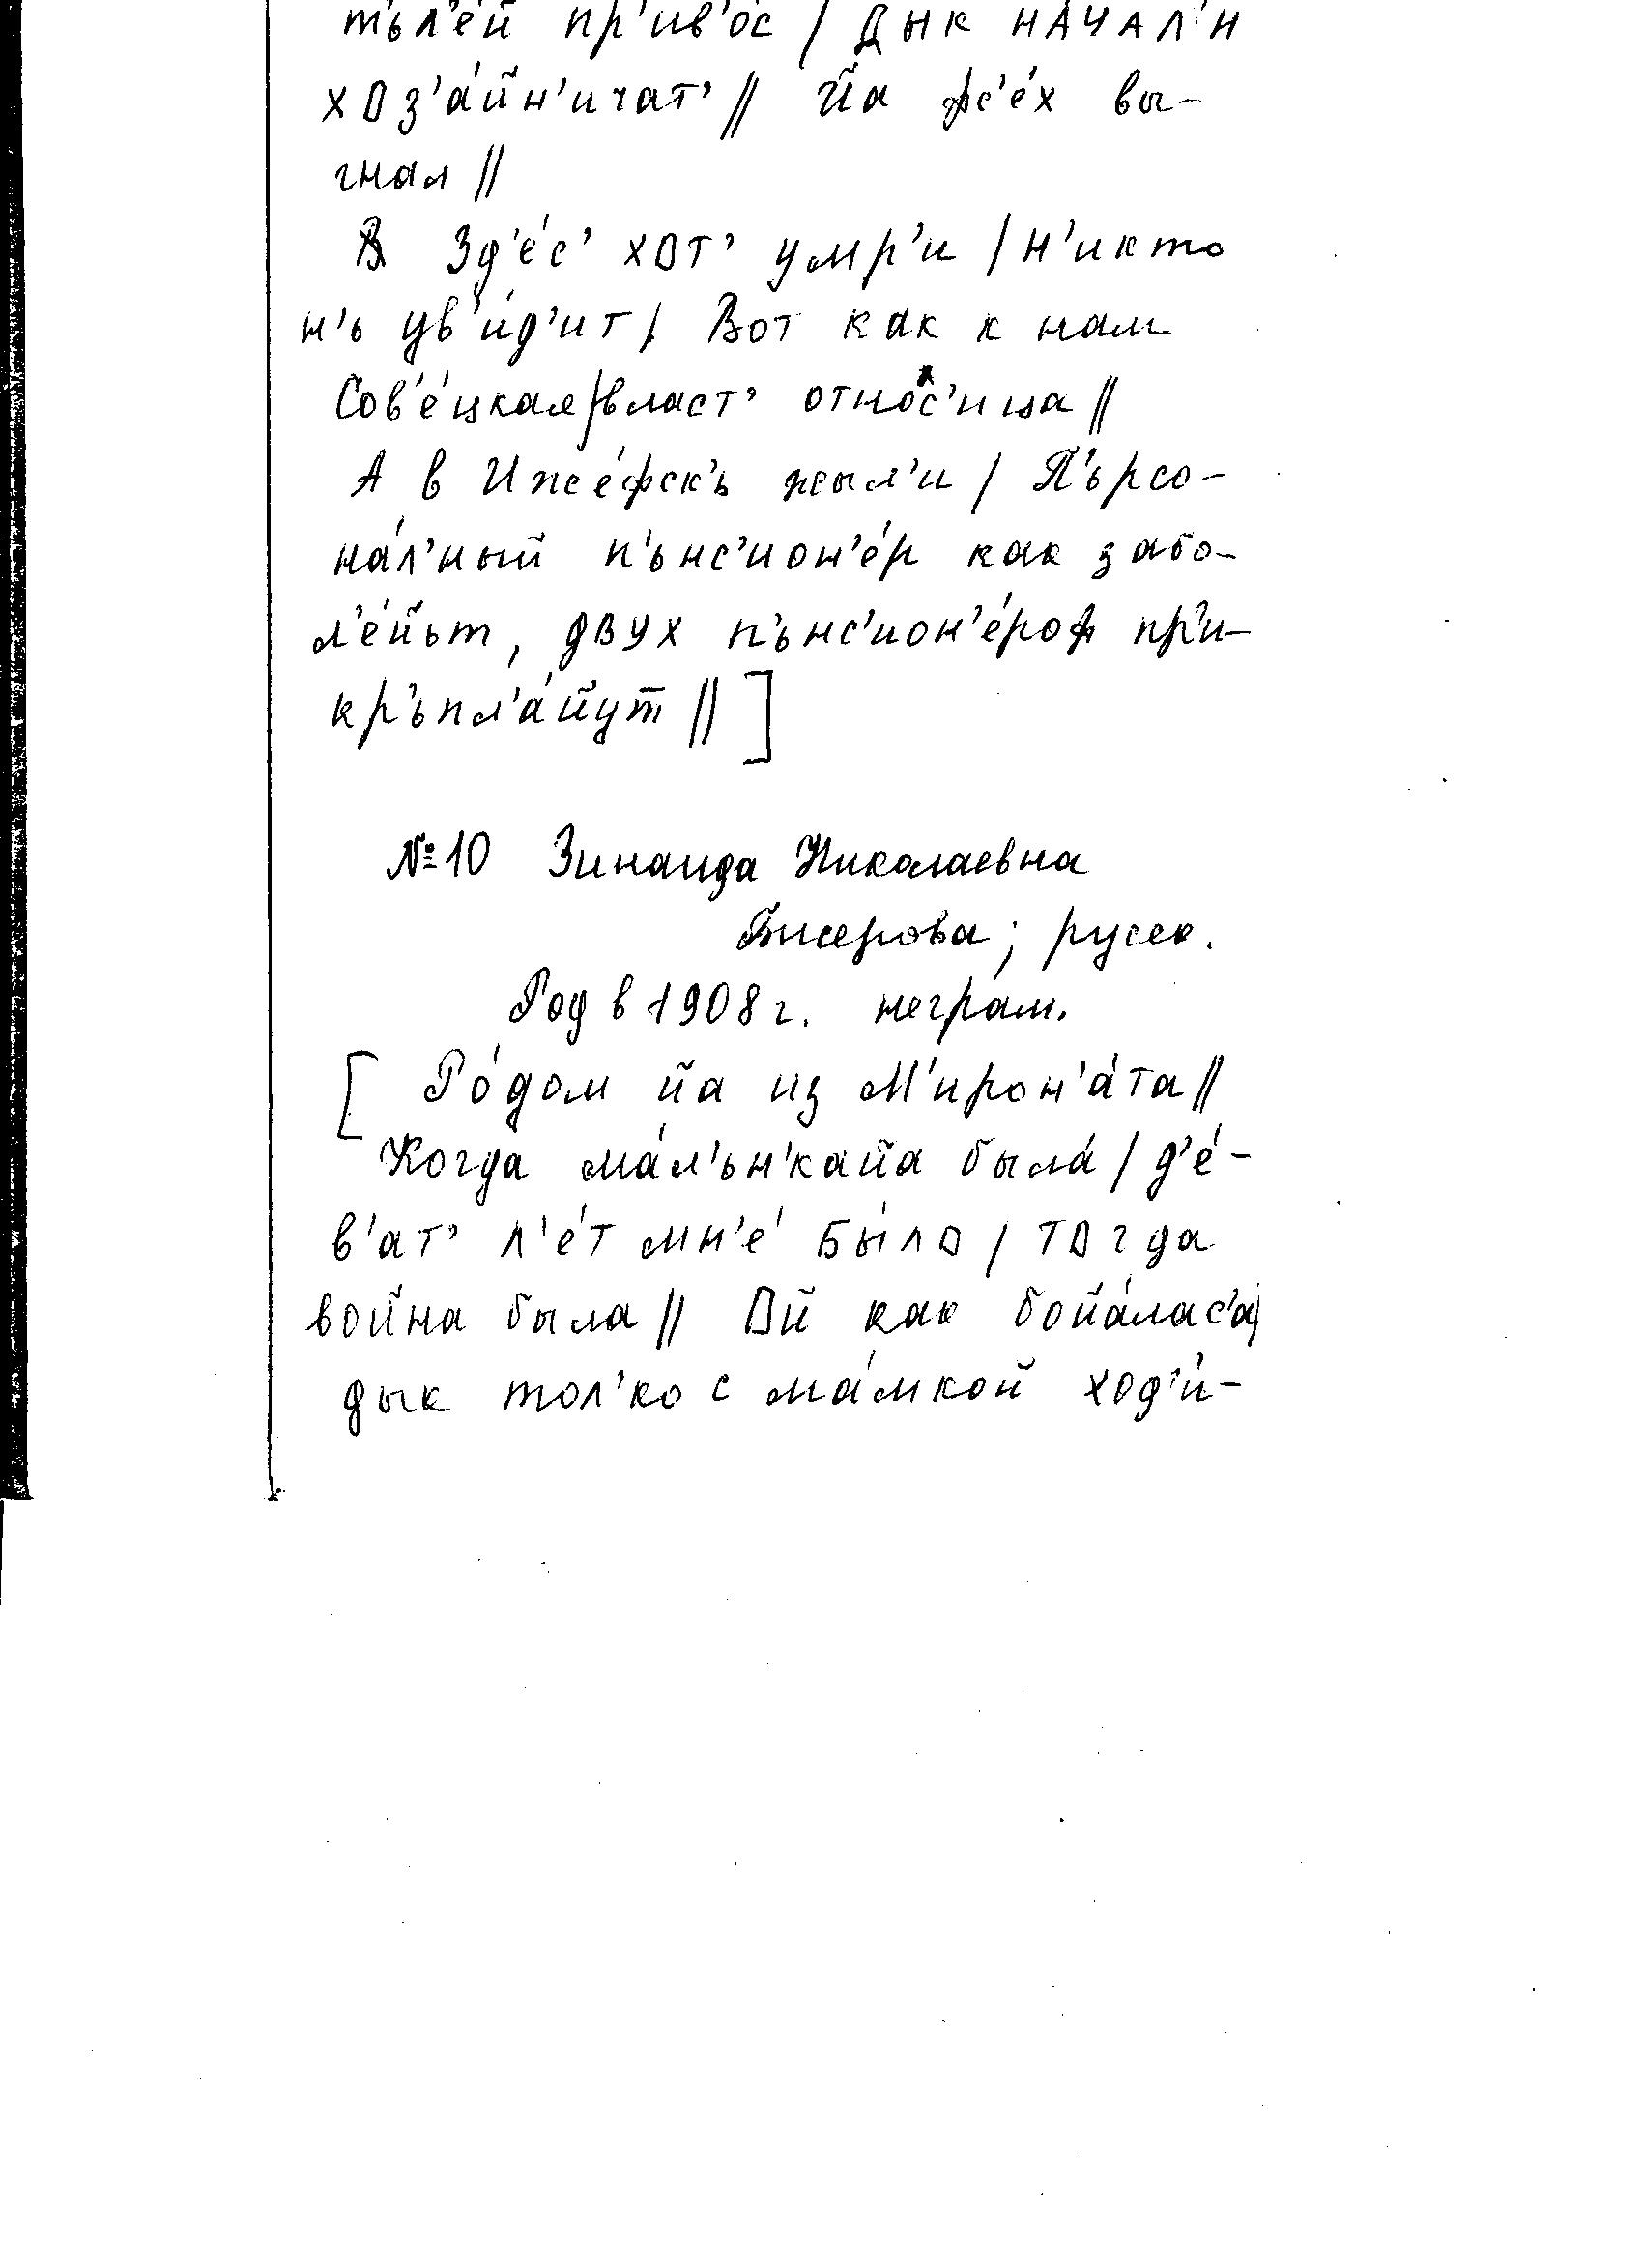 т'ьл'е́й пр'ив'о́с / Дык начал'и
хоз'а́йн'ичат' // Йа фс'е́х вы-
гнал //
Зд'е́с' хот' умр'и / н'икто
н'ь ув'и́д'ит / Вот как к нам
Сов'е́цкая власт' относ'ица //
А в Иже́фск'ь жыл'и / П'ьрсо-
на́л'ный п'ьнс'ион'е́р как забо-
л'е́йьт, двух п'ьнс'ион'е́роф пр'и-
кр'ьпл'а́йут // ]
№10 Зинаида Николаевна
Бисерова; русск.
Род в 1908 г. неграм.
[ Ро́дом йа из М'ирон'а́та //
Когда ма́л'ьн'кайа была́ / д'е́-
в'ат' л'е́т мн'е́ бы́ло / тогда
война была // Ой как бойа́лас'а /
дык тол'ко с ма́мкой ход'и́-